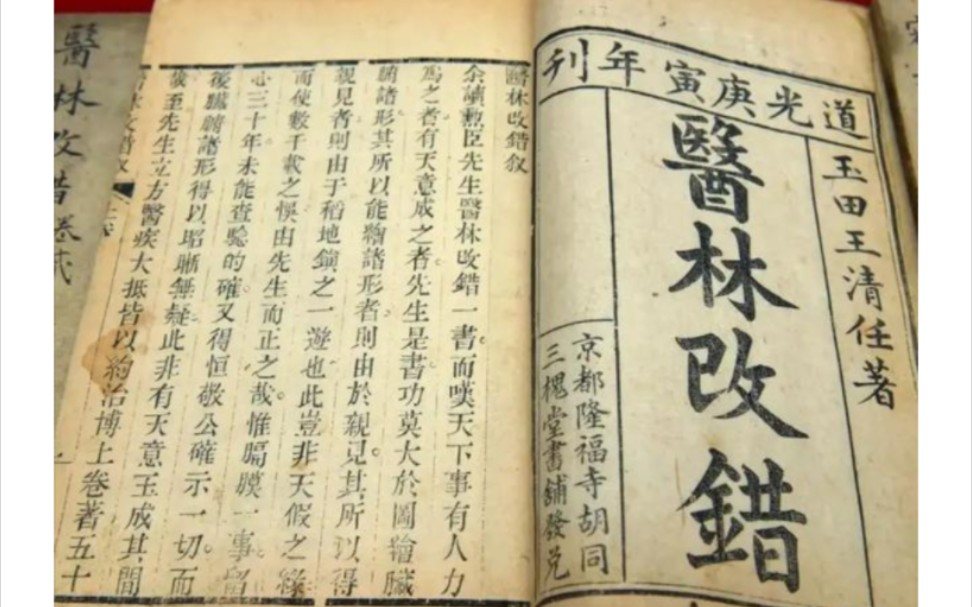 道光庚寅年刊
玉田王清任著
醫林改錯
京都隆福寺胡同
三槐堂書鋪發兌
醫林改錯叙
余讀勲臣先生醫林改錯一書而嘆天下事有人力
爲之者有天意成之者先生是書功莫大於圖繪臟
腑諸形其所以能繪諸形者則由於親見其所以得
親見者則由于稻地鎮之一遊也此豈非天假之緣
而使數千載之悞由先生而正之哉惟膈膜一事留
心三十年未能查驗的確又得恒敬公確示一切而
後臟腑諸形得以昭晰無疑此非有天意玉成其間
哉至先生立方醫疾大抵皆以約治博上卷著五十
林改錯叙
醫林改錯卷貳